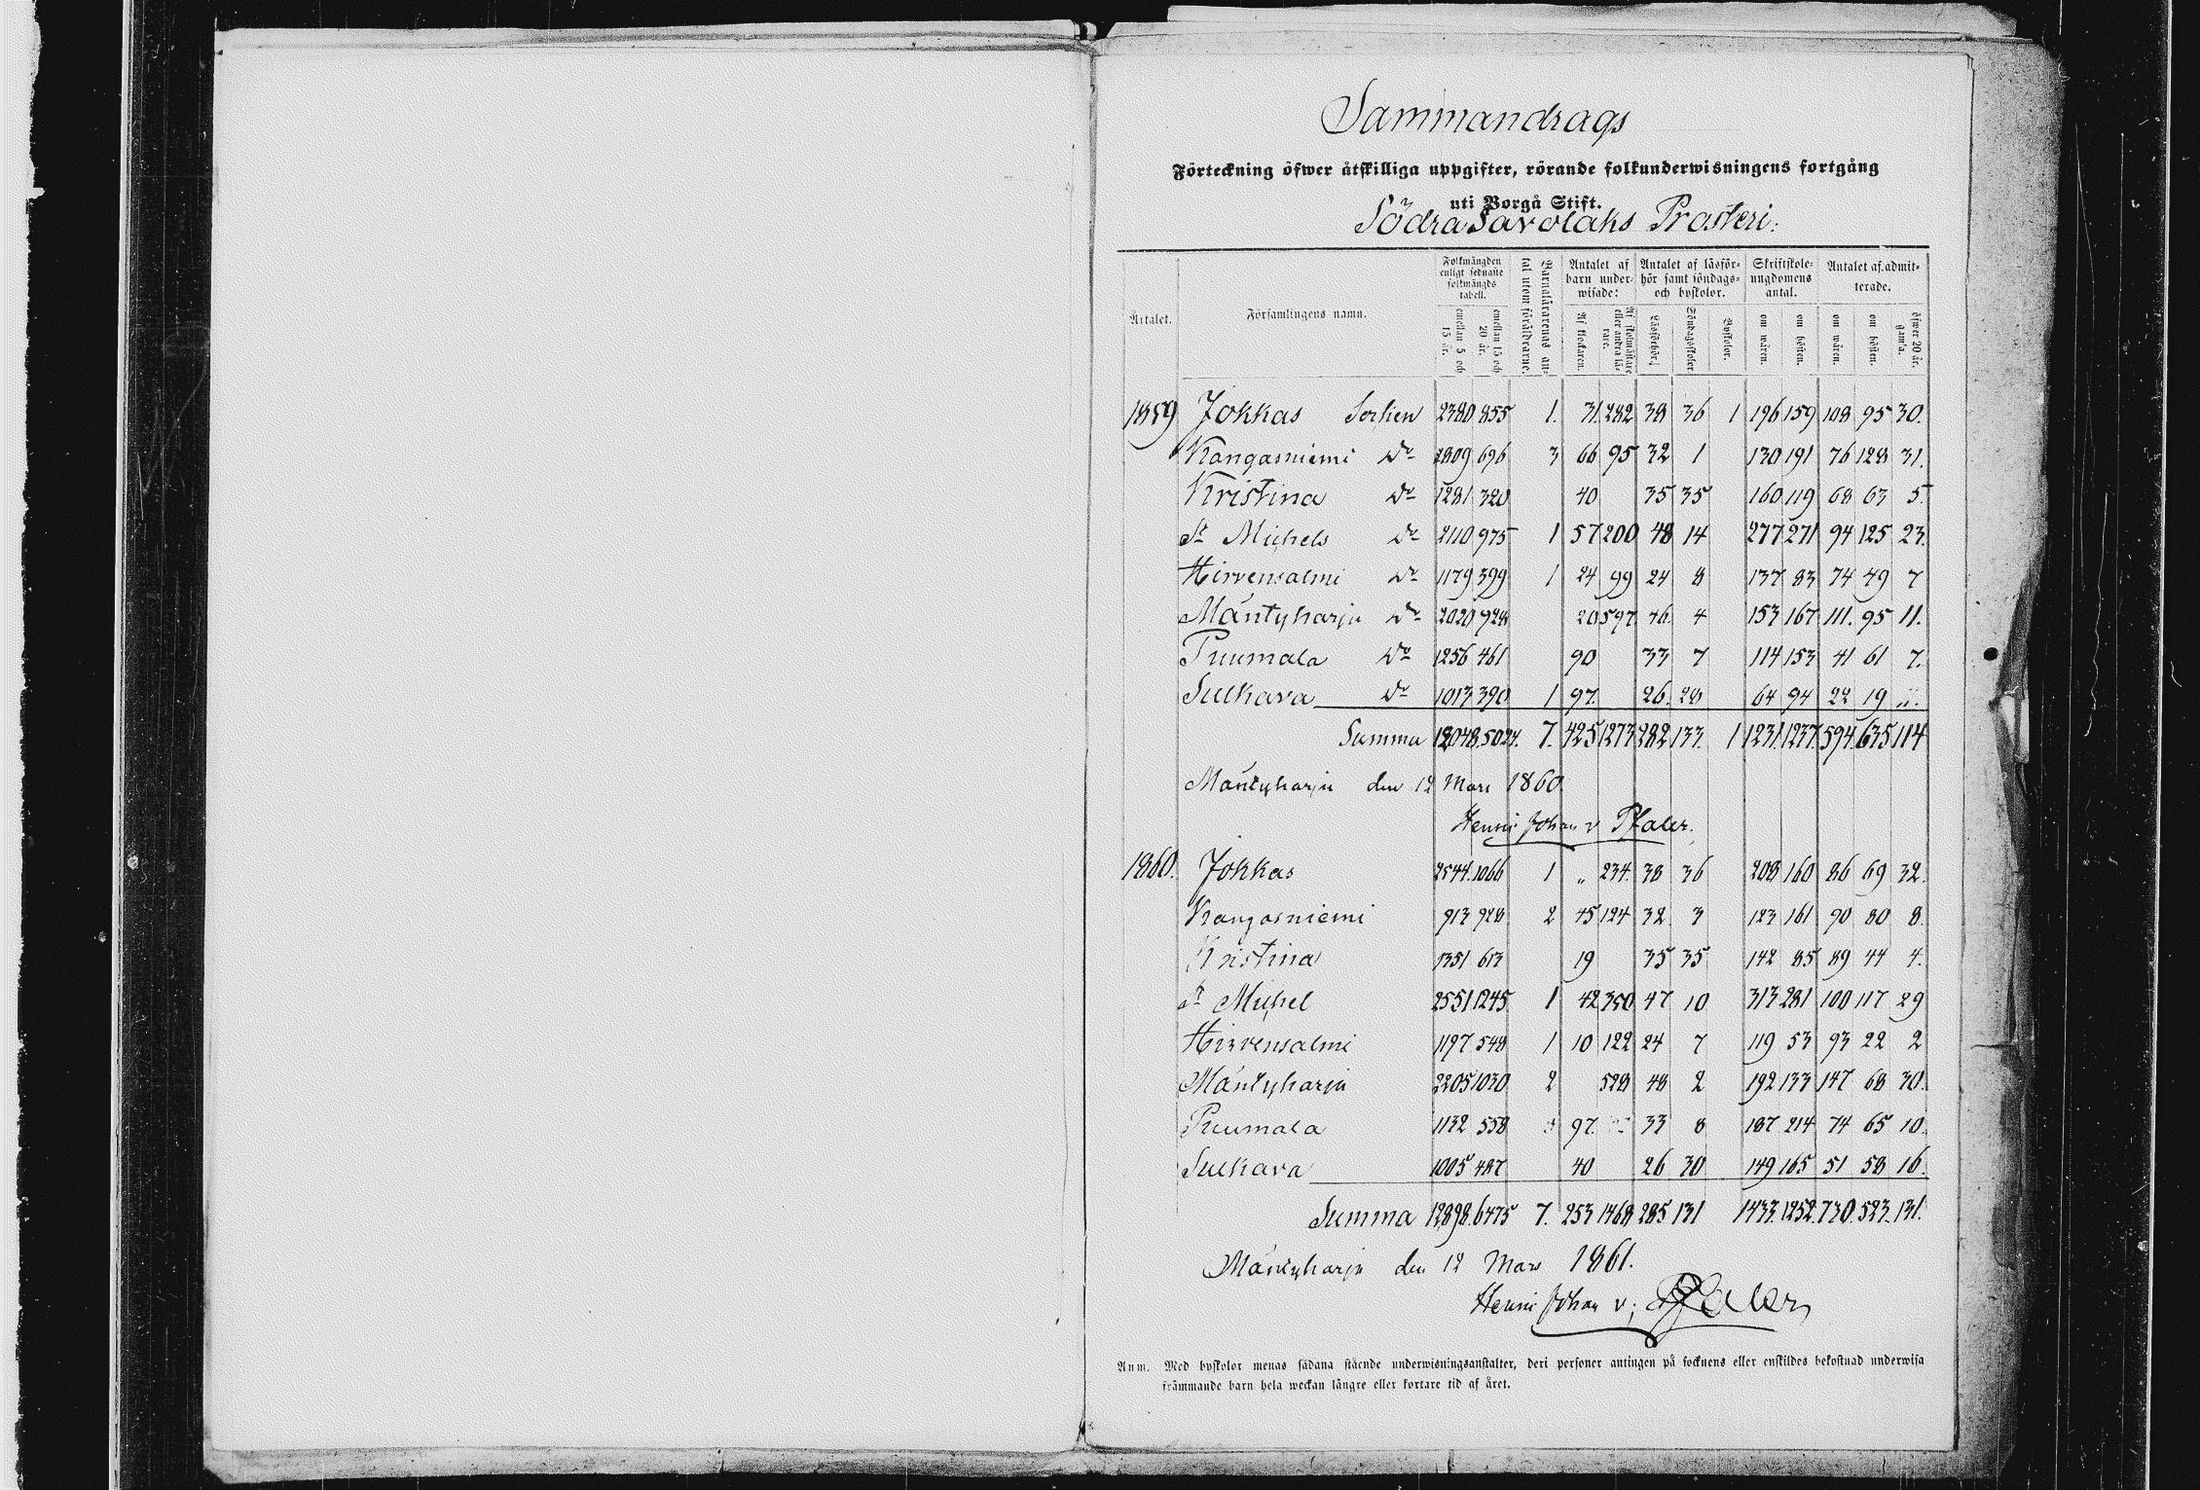 Sammandrags
Förteckning öfwer åtskilliga uppgifter, rörande folkunderwisningens fortgång
uti Borgå Stift.
Södra Savolaks Prosteri.
Årtalet.
Församlingens namn.
Folkmängden enligt sednaste folkmängds tabell.
emellan 5 och 15 år.
emellan 15 och 20 år.
Barnalärarenas antal utom föräldrarne.
Antalet af barn underwisade:
Af klockaren.
Af skolmästare eller andra lärare.
Antalet af läsförhör samt söndags- och byskolor.
Läsförhör.
Söndagsskolor
Byskolor.
Skriftskoleungdomens antal.
om wåren.
om hösten.
Antalet af admitterade.
om wåren.
om hösten.
öfwer 20 år. gaml'a.
1859 Jokkas Socken 2380 855 1. 31 282 38 36 1 196 159 108 95 30.
Kangasniemi Do 2809 696 3 66 95 32 1 130 191 76 128 31.
Kristina Do 1281 320 40 35 35 160 119 68 63 5.
St Michels Do 2110 975 1 57 200 48 14 277 271 94 125 23.
Hirvensalmi Do 1179 399 1 24 99 24 8 137 83 74 49 7
Mäntyharju Do 2020 928 20 597 46 4 153 167 111. 95 11.
Puumala Do 1256 461 90 33 7 114 153 41 61 7.
Sulkava Do 1013 390 1 97. 26. 28 64 94 22 19 „.
Summa 12048, 5024. 7. 425 1273 282 133. 1 1231. 1237. 594. 635 114
Mäntyharju den 12 Mars 1860.
Henric Johan v Pfaler.
1860. Jokkas 2544. 1066 1 „ 234. 38 36 208 160 86 69 32.
Kangasniemi 913 928 2 45 124 32 3 123 161 90 80 8.
Kristina 1351 613 19 35 35 142 85 89 44 4.
St Michel 2551 1245 1 42 350 47 10 313 281 100 117 29
Hirvensalmi 1197 548 1 10 122 24 7 119 53 93 22 2
Mäntyharju 2205 1030 2 528 48 2 192 133 147 68 30.
Puumala 1132 558 97. 33 8 187 214 74 65 10.
Sulkava 1005 487 40 26 30 149 165 51 58 16.
Summa 12,898. 6475 7. 253 1468 285 131 1433. 1252. 730. 523. 131.
Mäntyharju den 12 Mars 1861.
Henric Johan v. Pfaler
Anm. Med byskolor menas sådana stående underwisningsanstalter, deri personer antingen på socknens eller enskildes bekostnad underwisa
främmande barn hela weckan längre eller kortare tid af året.